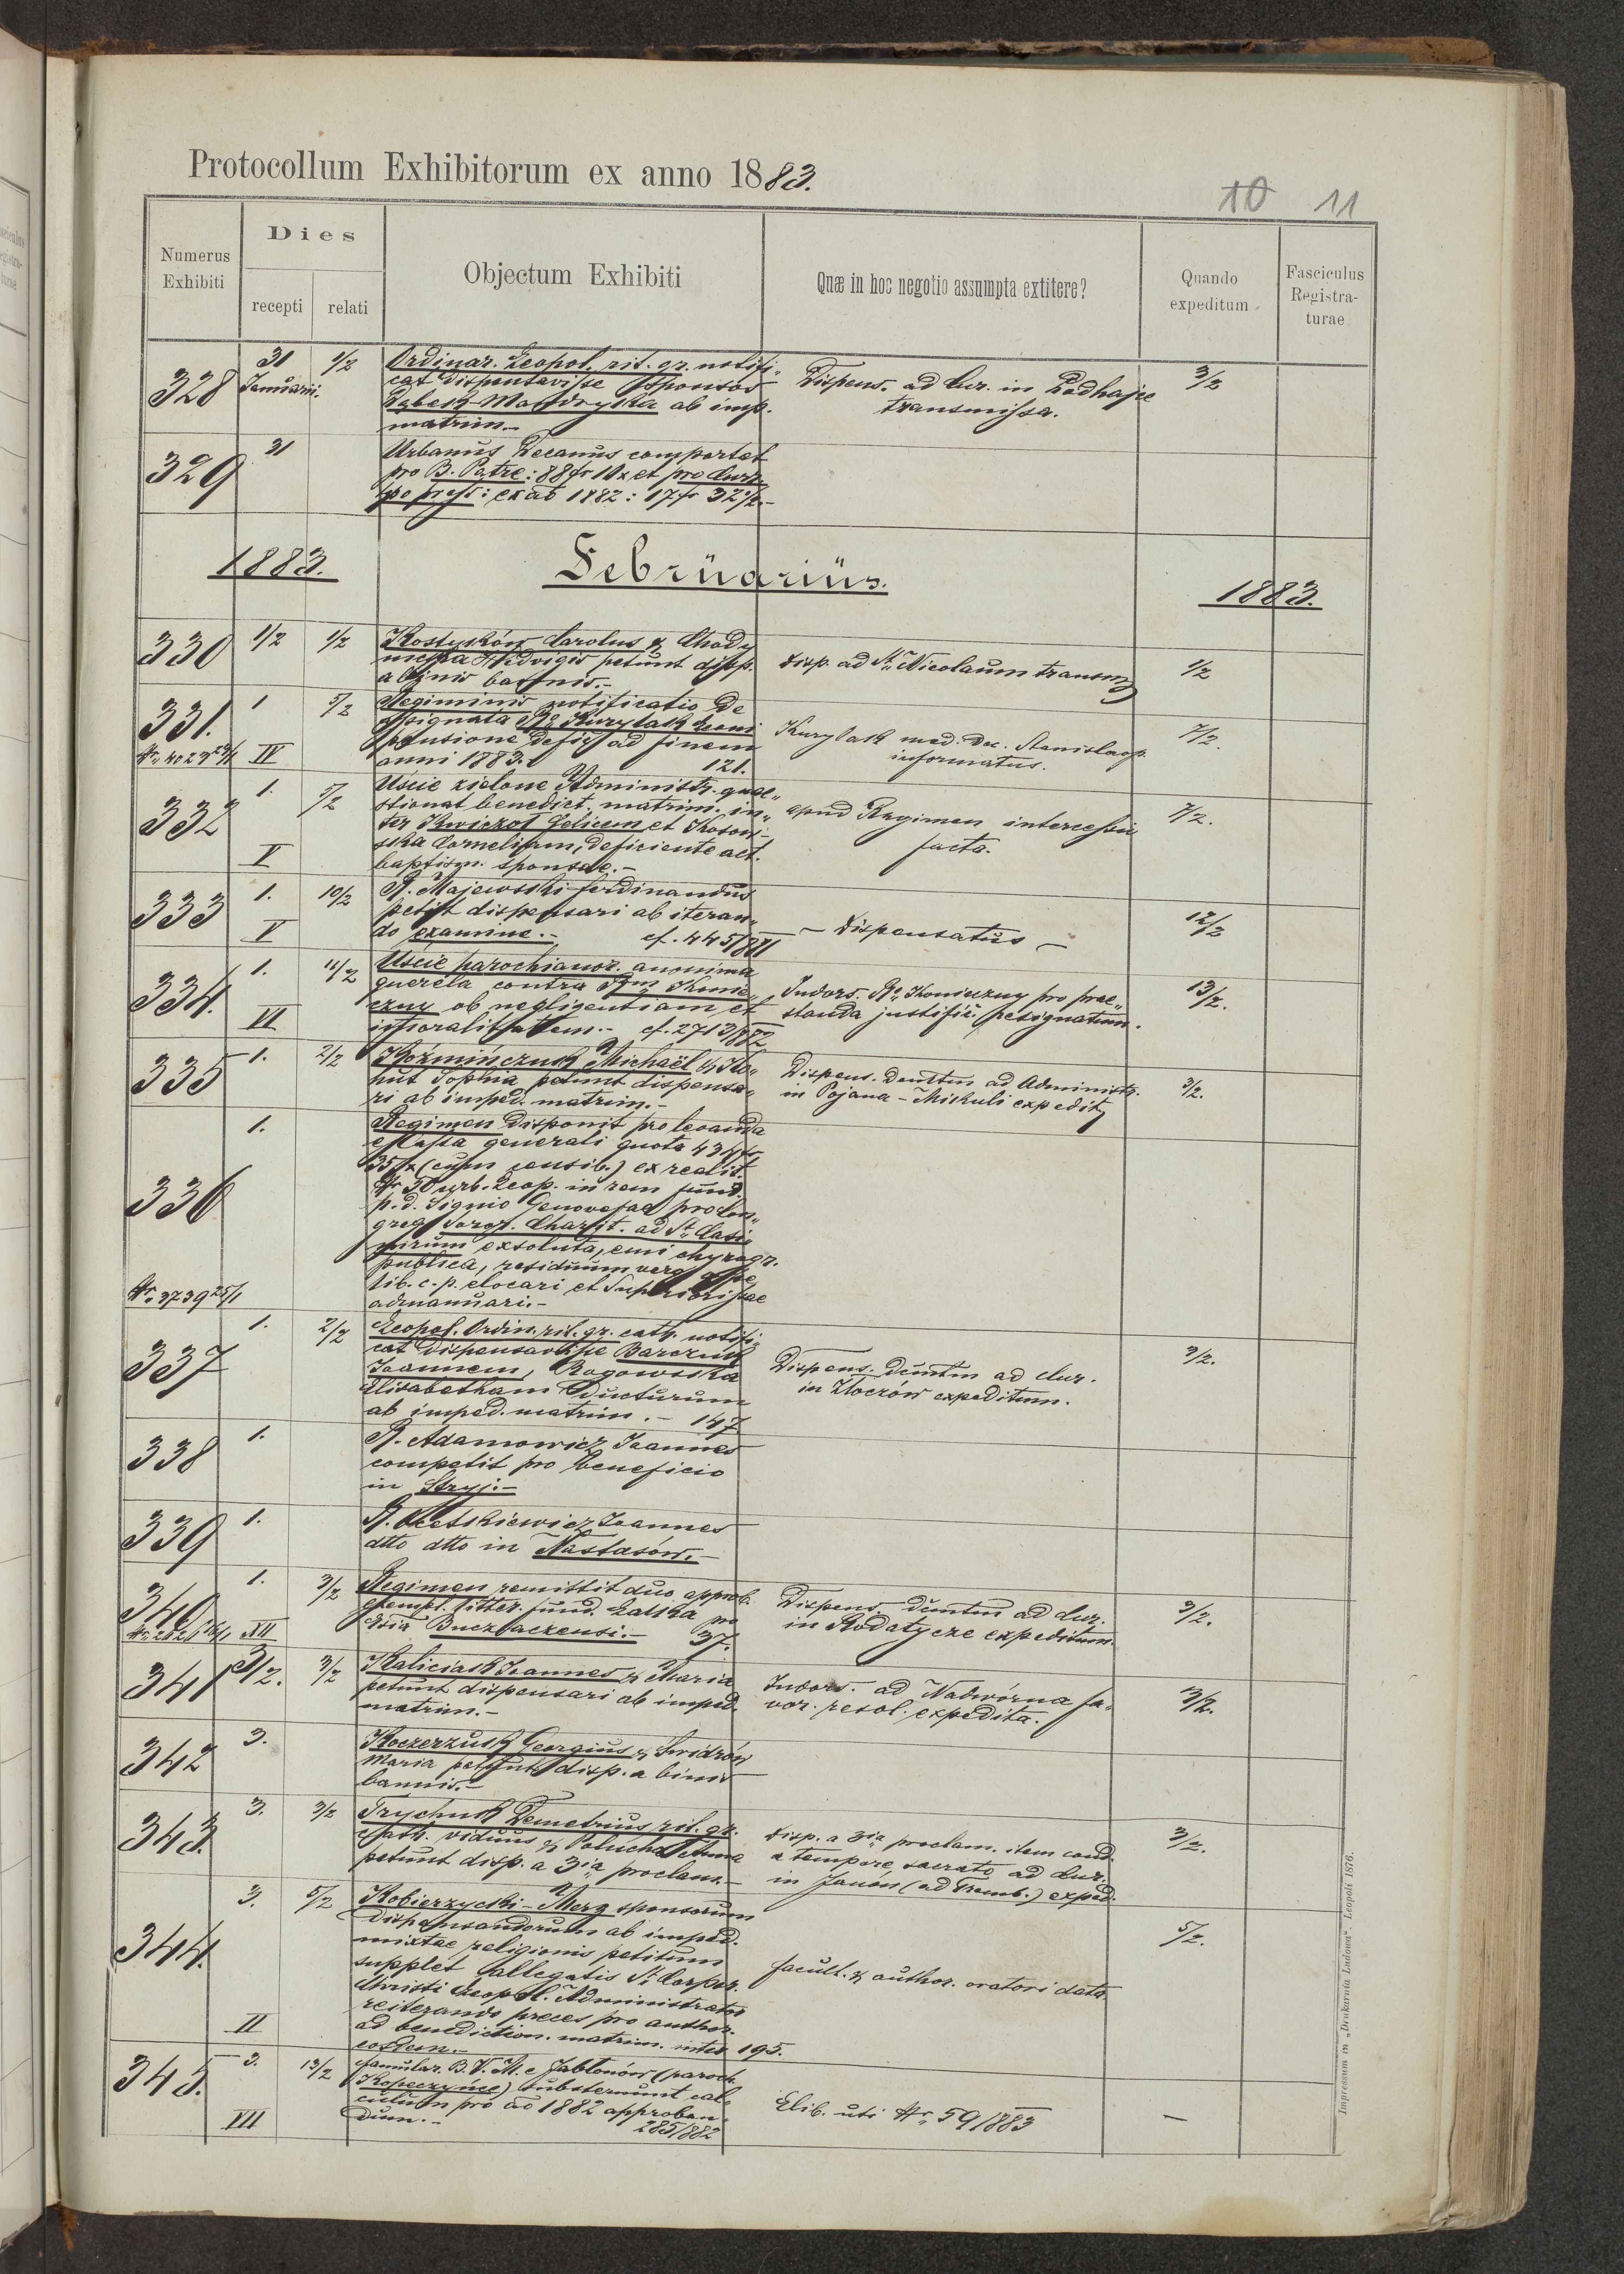 Protocollum Exhibitorum ex anno 1883.
10 11
Numerus Exhibiti
Dies
recepti relati
Objectum Exhibiti
Quæ in hoc negotio assumpta extitere?
Quando expeditum
Fasciculus Registraturae
328 31 Januarii. 1/2
Ordinar. Leopol. rit. gr. notifi„
cat dispensavisse sponsos
ab imp.
matrim.–
Dispens. ad Cur. in Podhajce
transmissa.
3/2
329 31
Urbanus Decanus comportat
pro B. Patre: 88 fr 10x et pro
1882: 17 fr
1883. Februarius. 1883.
330 1/2 1/2
Kostyków Carolus & Chody
nicka Hedvigis petunt disp.
a binis bannis.–
disp. ad St. Nicolaum transm.
1/2
331. 1 5/2
Nr. 4029 IV
Regiminis notificatio de
assignata Ro Kurylak Leoni
pensione defic. ad finem
anni 1883. 121.
Kurylak med. Dec. Stanislaop.
informatus.
7/2.
332 1. 5/2
V
Uście zielone Administr. quae„
stionat benedict. matrim. in„
ter Kwiczot Felicem et Kosow
ska Corneliam, deficiente act.
baptism. sponsae.–
apud Regimen intercessio
facta.
7/2.
333 1. 10/2
V
R. Majewski Ferdinandus
petit dispensari ab iteran„
do examine.– cf. 445/881
– Dispensatus –
12/2
334. 1. 11/2
VI
Uście parochianor. anonima
querela contra Rum Konie„
czny ob negligentiam et
immoralitatem.– cf. 2713/882
Indors. Ro Konieczny pro prae„
standa justific. resignatum.
13/2.
335 1. 2/2
Koźmińczuk Michaël & Ho„
nut Sophia petunt dispensa„
ri ab imped. matrim.–
Dispens. Deuttm ad Administr.
in Pojana – Mikuli expedit
3/2.
336 1.
Nr. 3739 25/1
Regimen disponit pro levanda
e cassa generali quota
35 x (cum sensib.) ex realit.
Nr 20 urb. Leop. in rem fund.
p. d. Signio Genovefae pro Con„
greg. Soror. Charit. ad St. Casi„
mirum exsoluta, emi chyrogr.
publica, residuum vero ope
lib. c. p. elocari et Superiorissae
admanuari.–
337 1. 2/2
Leopol. Ordin. rit. gr. cath. notifi„
cat dispensavisse Barczuk
Joannem, Rogowska
Elisabetham ducturum
ab imped. matrim.– 147
Dispens. deuttm ad Cur.
in Złoczów expeditum.
3/2.
338 1.
R. Adamowicz Joannes
competit pro beneficio
in Stryj.–
339 1.
Joannes
dtto dtto in Nastasów.–
340 1. 3/2
XII
Regimen remittit duo approb.
exempl. litter. fund. Latska pro
Buczaczensi.– 37.
Dispens. deuttm ad Cur.
in Rodatycze expeditum.
3/2.
341 3/2. 3/2
Kaliciask Joannes & Maria
petunt dispensari ab imped.
matrim.–
Indors. ad Nadwórna fa„
vor. resol. expedita.
3/2.
342 3.
Koczerzuk Georgius & Swidzów
Maria petunt disp. a binis
bannis.–
343. 3. 3/2
Trychuk Demetrius rit. gr.
cath. viduus & Palucha Anna
petunt disp. a 3ia proclam.–
disp. a 3ia proclam. item cond.
a tempore sacrato ad Cur.
in Janów (ad Tremb.) exped.
3/2.
344. 3. 5/2
II
Kobierzycki – Merg sponsorum
dispensandorum ab imped.
mixtae religionis petitum
supplet allegatis St. Corpor.
Christi Leopol. Administrator
reiterando preces pro author.
ad benediction. matrim. inter
eosdem.– 195.
facult. & author. oratori data
5/2.
345. 3. 13/2
VII
famular. B. V. M. e Jabłonów (paroch.
Kopeczyńce) substernunt cal„
culum pro ao 1882 approban„
dum.– 285/882
Elib. uti Nr. 59/883
–
Impressum in „Drukarnia Ludowa“. Leopoli 1876.